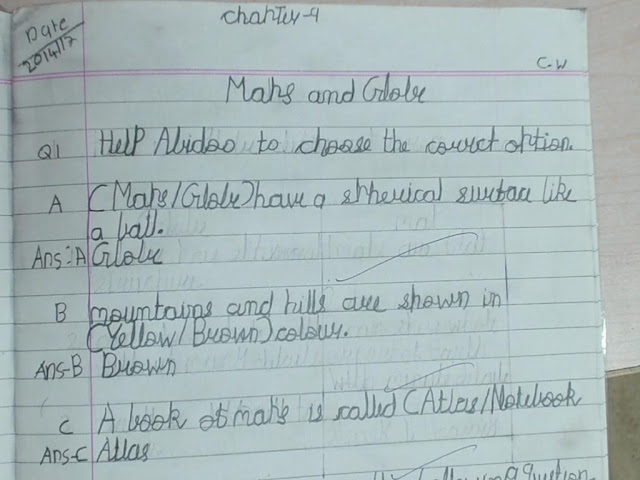 Chapter-4
Date
20/4/17
C.W
Maps and Globe
Q1 Help Abidao to choose the correct option.
A (Maps/Globe) have a spherical surface like
a ball.
Ans:A Globe
B mountains and hills are shown in
(Yellow/Brown) colour.
Ans-B Brown
C A book of maps is called (Atlas/Notebook
Ans-C Atlas
following Question